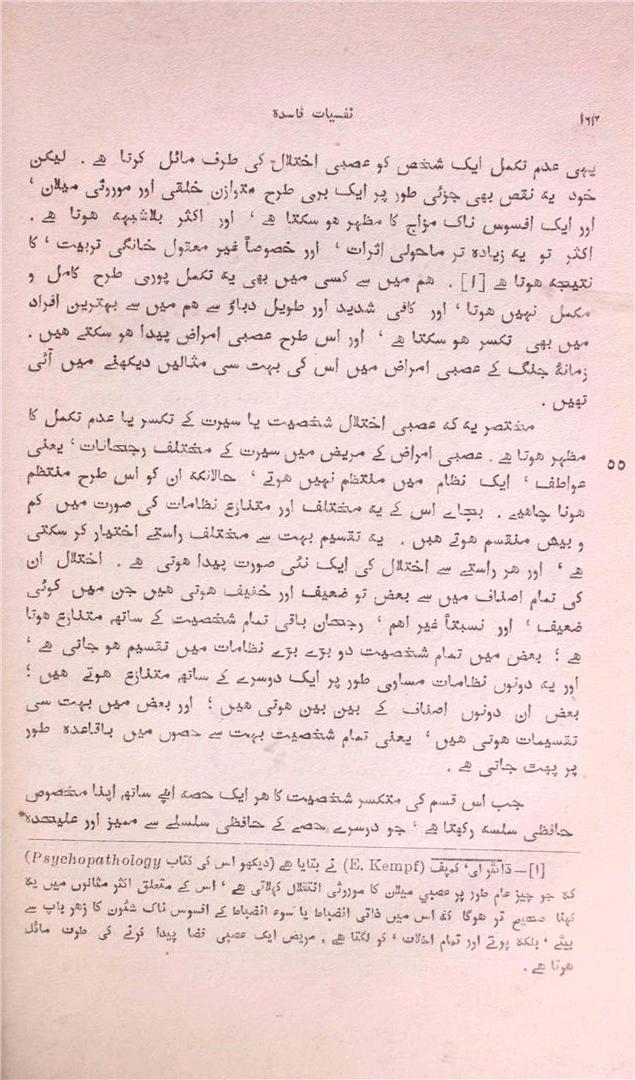 نفسیات فاسدہ
۱۶۲
یہی عدم تکمل ایک شخص کو عصبی اختلال کی طرف مائل کرتا ہے ۔ لیکن
خود یہ نقص بھی جزئی طور پر ایک بری طرح متوازن خلقی اور موروثی میلان ‘
اور ایک افسوس ناک مزاج کا مظہر ہو سکتا ہے ‘ اور اکثر بلاشبہہ ہوتا ہے ۔
اکثر تو یہ زیادہ تر ماحولی اثرات ‘ اور خصوصاً غیر معتول خانگی تربیت ‘ کا
نتیجہ ہوتا ہے [۱] ۔ ہم میں سے کسی میں بھی یہ تکمل پوری طرح کامل و
مکمل نہیں ہوتا ‘ اور کافی شدید اور طویل دباؤ سے ہم میں سے بہترین افراد
میں بھی تکسر ہو سکتا ہے ‘ اور اس طرح عصبی امراض پیدا ہو سکتے ہیں ۔
زمانۂ جنگ کے عصبی امراض میں اس کی بہت سی مثالیں دیکھنے میں آئی
تھیں ۔
مختصر یہ کہ عصبی اختلال شخصیت یا سیرت کے تکسر یا عدم تکمل کا
مظہر ہوتا ہے ۔ عصبی امراض کے مریض میں سیرت کے مختلف رجحانات ‘ یعنی
عواطف ‘ ایک نظام میں منتظم نہیں ہوتے ‘ حالانکہ ان کو اس طرح منتظم
۵۵
ہونا چاہیے ۔ بجاے اس کے یہ مختلف اور متنازع نظامات کی صورت میں کم
و بیش منقسم ہوتے ہیں ۔ یہ تقسیم بہت سے مختلف راستے اختیار کر سکتی
ہے ‘ اور ہر راستے سے اختلال کی ایک نئی صورت پیدا ہوتی ہے ۔ اختلال ان
کی تمام اصناف میں سے بعض تو ضعیف اور خفیف ہوتی ہیں جن میں کوئی
ضعیف ‘ اور نسبتاً غیر اہم ‘ رجحان باقی تمام شخصیت کے ساتھ متنازع ہوتا
ہے ؛ بعض میں تمام شخصیت دو بڑے بڑے نظامات میں تقسیم ہو جاتی ہے ‘
اور یہ دونوں نظامات مساوی طور پر ایک دوسرے کے ساتھ متنازع ہوتے ہیں ؛
بعض ان دونوں اصناف کے بین بین ہوتی ہیں ؛ اور بعض میں بہت سی
تقسیمات ہوتی ہیں ‘ یعنی تمام شخصیت بہت سے حصوں میں باقاعدہ طور
پر پھٹ جاتی ہے ۔
جب اس قسم کی متکسر شخصیت کا ہر ایک حصہ اپنے ساتھ اپنا مخصوص
حافظی سلسہ رکھتا ہے ‘ جو دوسرے حصے کے حافظی سلسلے سے ممیز اور علیحدہ
[۱]—ڈاکٹر ای‘ کمپف (E. Kempf) نے بتایا ہے (دیکھو اس کی کتاب Psychopathology)
کہ جو چیز عام طور پر عصبی میلان کا موروثی انتقال کہلاتی ہے ‘ اس کے متعلق اکثر مثالوں میں یہ
کہنا صحیح تو ہوگا کہ اس میں ذاتی انضباط یا سوء انضباط کے افسوس ناک شئون کا زہر باپ سے
بیٹے ‘ بلکہ پوتے اور تمام اخلاف ‘ کو لگتا ہے ۔ مریض ایک عصبی فضا پیدا کرنے کی طرف مائل
ہوتا ہے ۔